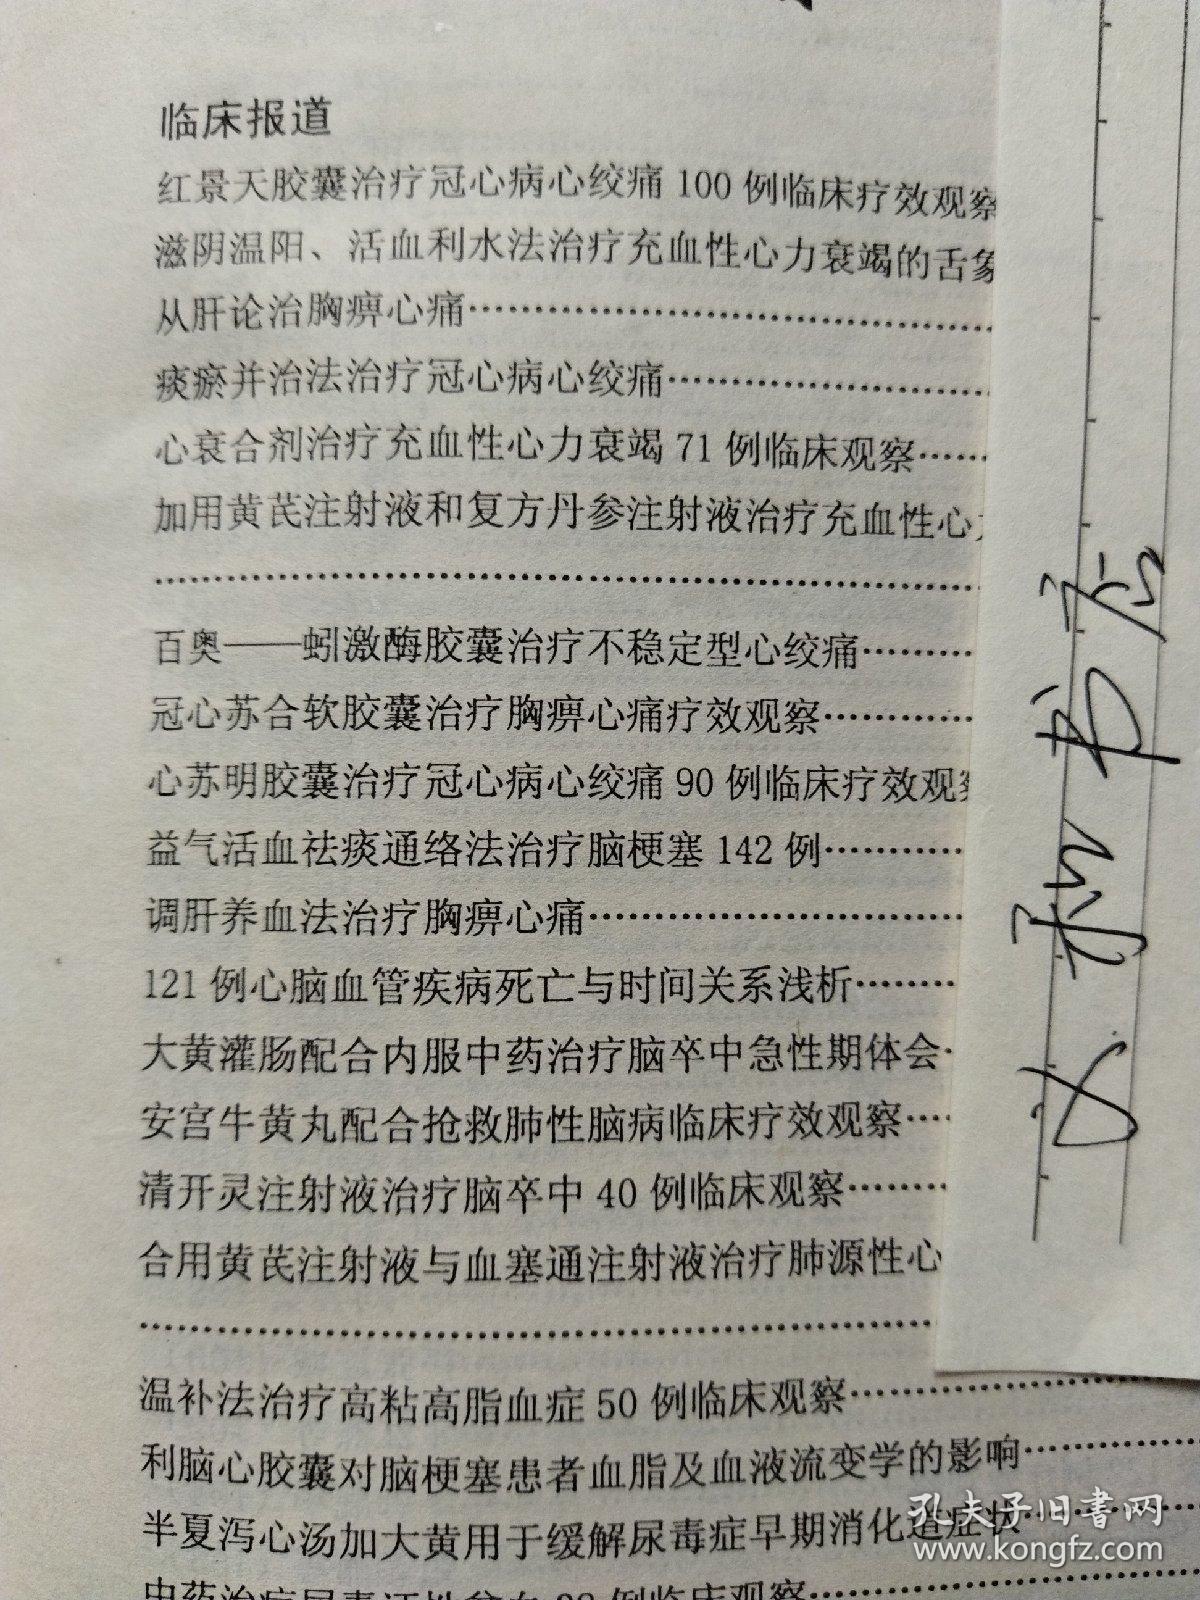 临床报道
红景天胶囊治疗冠心病心绞痛 100 例临床疗效观察
滋阴温阳、活血利水法治疗充血性心力衰竭的舌象
从肝论治胸痹心痛……………………………………
痰瘀并治法治疗冠心病心绞痛………………………
心衰合剂治疗充血性心力衰竭 71 例临床观察……
加用黄芪注射液和复方丹参注射液治疗充血性心
………………………………………………………………
百奥——蚓激酶胶囊治疗不稳定型心绞痛………
冠心苏合软胶囊治疗胸痹心痛疗效观察…………
心苏明胶囊治疗冠心病心绞痛 90 例临床疗效观察
益气活血祛痰通络法治疗脑梗塞 142 例…………
调肝养血法治疗胸痹心痛……………………………
121 例心脑血管疾病死亡与时间关系浅析………
大黄灌肠配合内服中药治疗脑卒中急性期体会…
安宫牛黄丸配合抢救肺性脑病临床疗效观察……
清开灵注射液治疗脑卒中 40 例临床观察………
合用黄芪注射液与血塞通注射液治疗肺源性心
………………………………………………………………
温补法治疗高粘高脂血症 50 例临床观察…………………
利脑心胶囊对脑梗塞患者血脂及血液流变学的影响…………
半夏泻心汤加大黄用于缓解尿毒症早期消化道症状…………
书店
孔夫子旧书网
www.kongfz.com